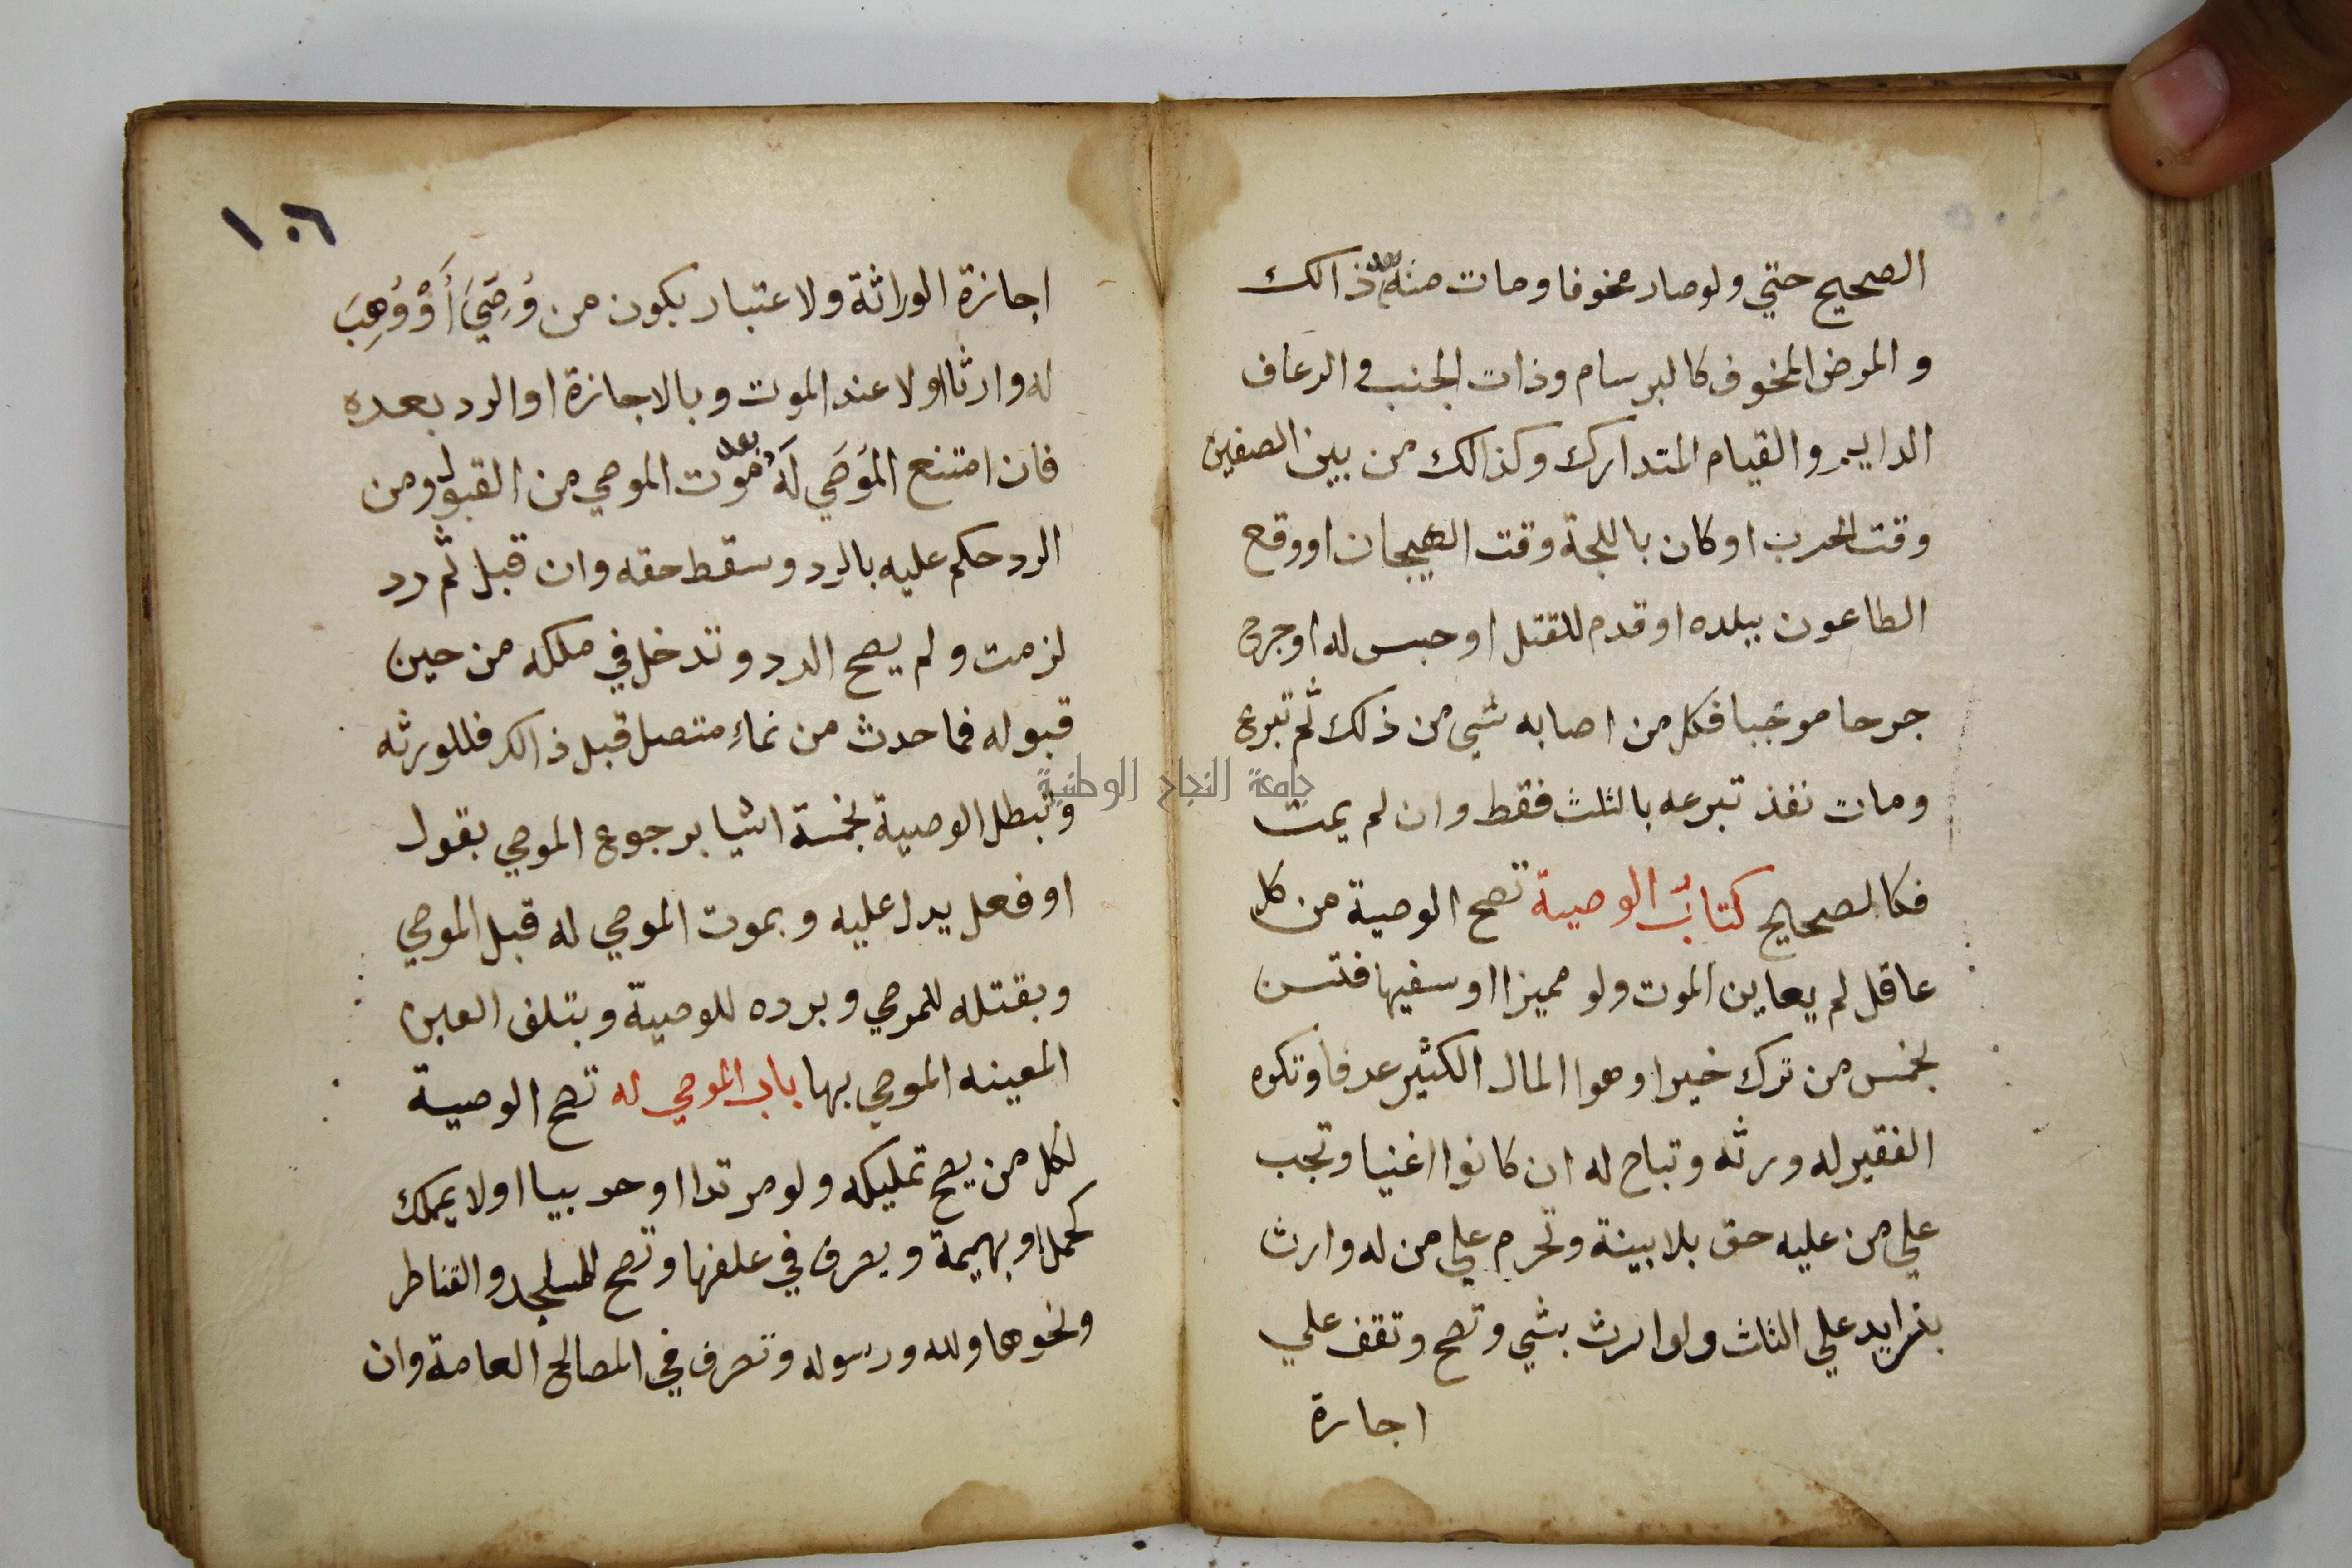 الصحيح حتي ولو صار مخوفا ومات منه بعد ذالك
و المرض المخوف كالبرسام وذات الجنب والرعاف
الدايم والقيام المتدارك وكذالك من بين الصفين
وقت الحرب او كان باللجة وقت الهيجان او وقع
الطاعون ببلده او قدم للقتل او حبس له او جرح
جرحا موجبا فكل من اصابه شي من ذلك ثم تبرع
ومات نفذ تبرعه بالثلث فقط وان لم يمت
فكالصحيح كتاب الوصية تصح الوصية من كل
عاقل لم يعاين الموت ولو مميزا او سفيها فتسن
بخمس من ترك خيرا وهوا المال الكثير عرفا وتكره
الفقير له ورثه وتباح له ان كانوا اغنيا وتجب
علي من عليه حق بلا بينة وتحرم علي من له وارث
بزايد علي الثلث ولوارث بشي وتصح وتقف علي
اجازة
١٠٦
اجازة الوراثة ولاعتبار بكون من وُصِّيَ أَوْ وُهِبَ
له وارثا او لا عند الموت وبالاجازة او الرد بعده
فان امتنع المُوصَي لَهُ بعد موت الموصي من القبول ومن
الرد حكم عليه بالرد وسقط حقه وان قبل ثم رد
لزمت ولم يصح الرد وتدخل في ملكه من حين
قبوله فما حدث من نماء متصل قبل ذالك فللورثه
وتبطل الوصية بخمسة اشيا برجوع الموصي بقول
او فعل يدل عليه وبموت الموصي له قبل الموصي
وبقتله للموصي وبرده للوصية وبتلف العين
المعينه الموصي بها باب الموصي له تصح الوصية
لكل من يصح تمليكه ولو مرتدا او حربيا او لا يملك
كحمل او بهيمة ويصرف في علفها وتصح للمساجد والقناطر
ونحوها ولله ورسوله وتصرف في المصالح العامة وان
جامعة النجاح الوطنية